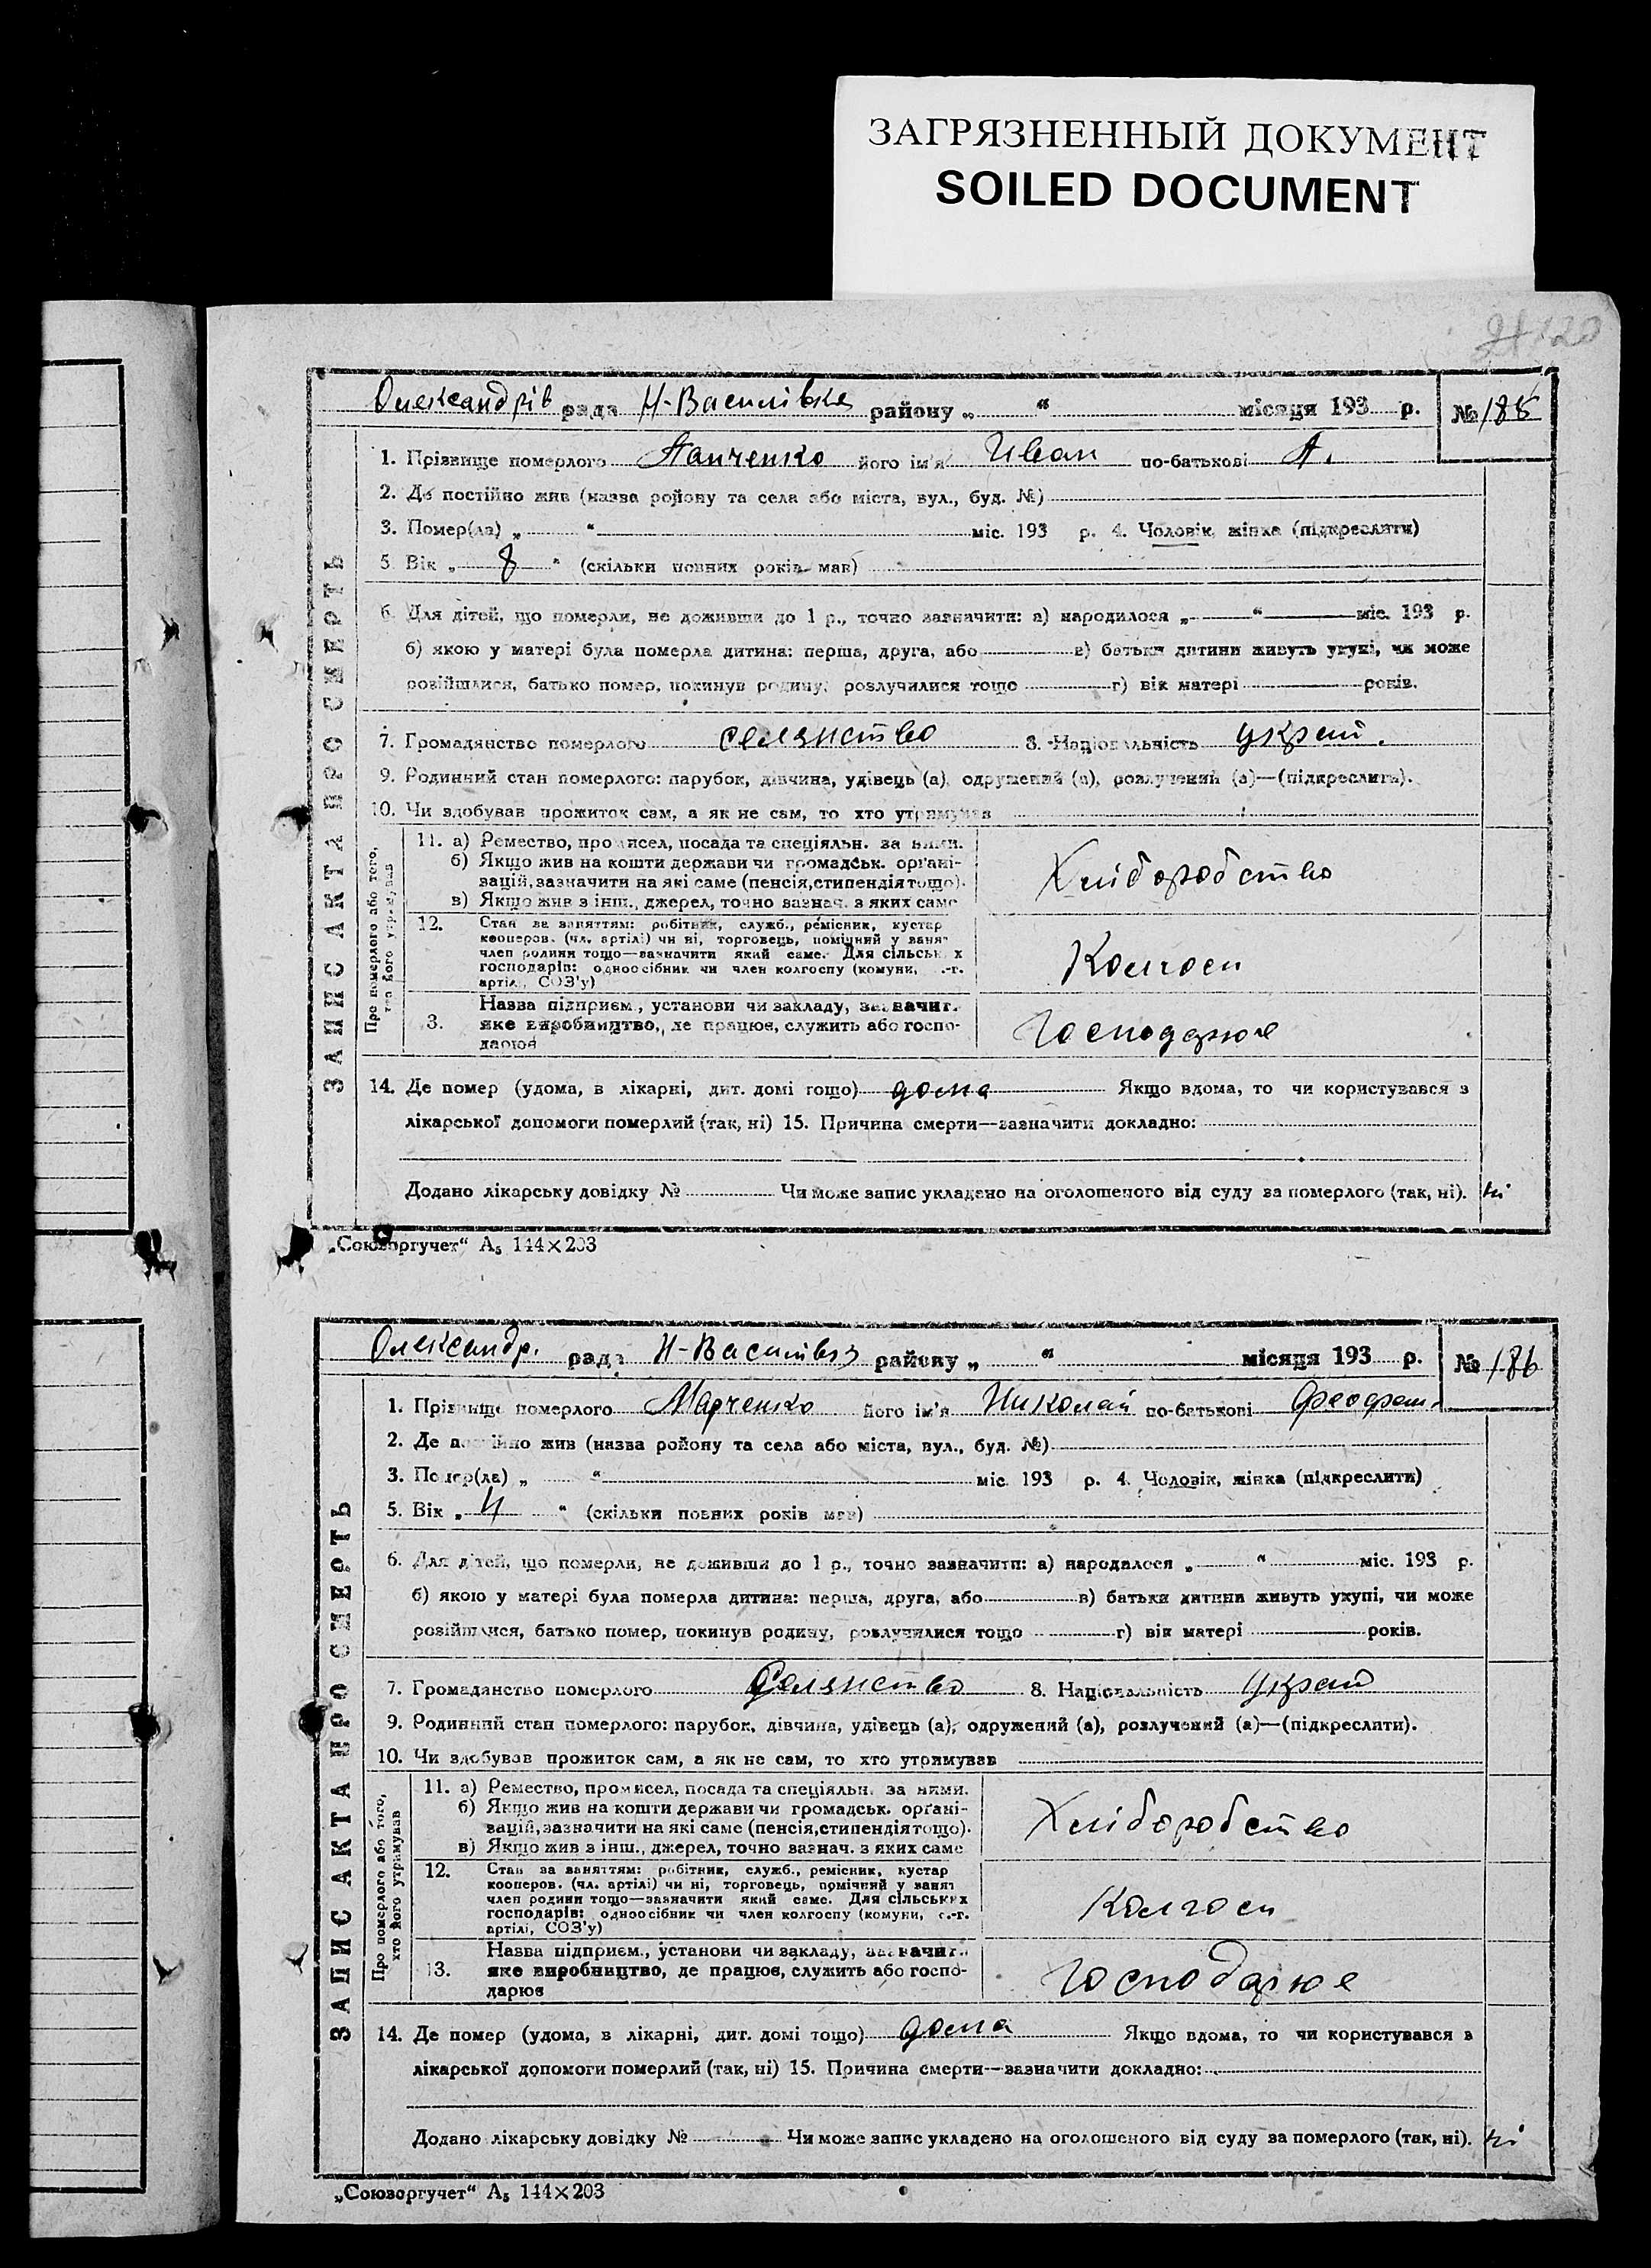 ЗАГРЯЗНЕННЫЙ ДОКУМЕНТ
SOILED DOCUMENT
120
Олександрів рада Н-Василівка району „ “ місяця 193 р. № 185
1. Прізвище померлого Панченко його ім'я Иван по-батькові А.
2. Де постійно жив (назва ройону та села або міста, вул., буд. №)
3. Помер(ла) „ “ міс. 193 р. 4. Чоловік, жінка (підкреслити)
5. Вік „ 8 “ (скільки повних років мав)
ЗАПИС АКТА ПРО СМЕРТЬ
6. Для дітей, що померли, не доживши до 1 р., точно зазначити: а) народилося „ “ міс. 193 р.
б) якою у матері була померла дитина: перша, друга, або в) батьки дитини живуть укупі, чи може
розійшлися, батько помер, покинув родину, розлучилися тощо г) вік матері років.
7. Громадянство померлого селянство 8. Національність украй.
9. Родинний стан померлого: парубок, дівчина, удівець (а), одружений (а), розлучений (а)—(підкреслити).
10. Чи здобував прожиток сам, а як не сам, то хто утримував
Про померлого або того, хто його утримував
11. а) Ремество, промисел, посада та спеціяльн. за ними.
б) Якщо жив на кошти держави чи громадськ. орґані-
зацій, зазначити на які саме (пенсія, стипендія тощо).
в) Якщо жив з інш., джерел, точно зазнач. з яких саме
Хліборобство
12. Стан за заняттям: робітник, служб., ремісник, кустар
кооперов. (чл. артілі) чи ні, торговець, помічний у занят
член родини тощо—зазначити який саме. Для сільських
господарів: одноосібник чи член колгоспу (комуни, с.-г.
артілі, СОЗ'у)
Колгосп
13. Назва підприєм., установи чи закладу, зазначит.
яке виробництво, де працює, служить або госпо-
дарює
Господарює
14. Де помер (удома, в лікарні, дит. домі тощо) дома Якщо вдома, то чи користувався з
лікарської допомоги померлий (так, ні) 15. Причина смерти—зазначити докладно:
Додано лікарську довідку № Чи може запис укладено на оголошеного від суду за померлого (так, ні). ні
„Союзоргучет“ А₅ 144×203
Олександр. рада Н-Василівка району „ “ місяця 193 р. № 186
1. Прізвище померлого Марченко його ім'я Николай по-батькові Феофан.
2. Де постійно жив (назва ройону та села або міста, вул., буд. №)
3. Помер(ла) „ “ міс. 193 р. 4. Чоловік, жінка (підкреслити)
5. Вік „ 4 “ (скільки повних років мав)
ЗАПИС АКТА ПРО СМЕРТЬ
6. Для дітей, що померли, не доживши до 1 р., точно зазначити: а) народилося „ “ міс. 193 р.
б) якою у матері була померла дитина: перша, друга, або в) батьки дитини живуть укупі, чи може
розійшлися, батько помер, покинув родину, розлучилися тощо г) вік матері років.
7. Громадянство померлого Селянство 8. Національність украй
9. Родинний стан померлого: парубок, дівчина, удівець (а), одружений (а), розлучений (а)—(підкреслити).
10. Чи здобував прожиток сам, а як не сам, то хто утримував
Про померлого або того, хто його утримував
11. а) Ремество, промисел, посада та спеціяльн. за ними.
б) Якщо жив на кошти держави чи громадськ. орґані-
зацій, зазначити на які саме (пенсія, стипендія тощо).
в) Якщо жив з інш., джерел, точно зазнач. з яких саме
Хліборобство
12. Стан за заняттям: робітник, служб., ремісник, кустар
кооперов. (чл. артілі) чи ні, торговець, помічний у занят
член родини тощо—зазначити який саме. Для сільських
господарів: одноосібник чи член колгоспу (комуни, с.-г.
артілі, СОЗ'у)
Колгосп
13. Назва підприєм., установи чи закладу, зазначит.
яке виробництво, де працює, служить або госпо-
дарює
Господарює
14. Де помер (удома, в лікарні, дит. домі тощо) дома Якщо вдома, то чи користувався з
лікарської допомоги померлий (так, ні) 15. Причина смерти—зазначити докладно:
Додано лікарську довідку № Чи може запис укладено на оголошеного від суду за померлого (так, ні). ні
„Союзоргучет“ А₅ 144×203